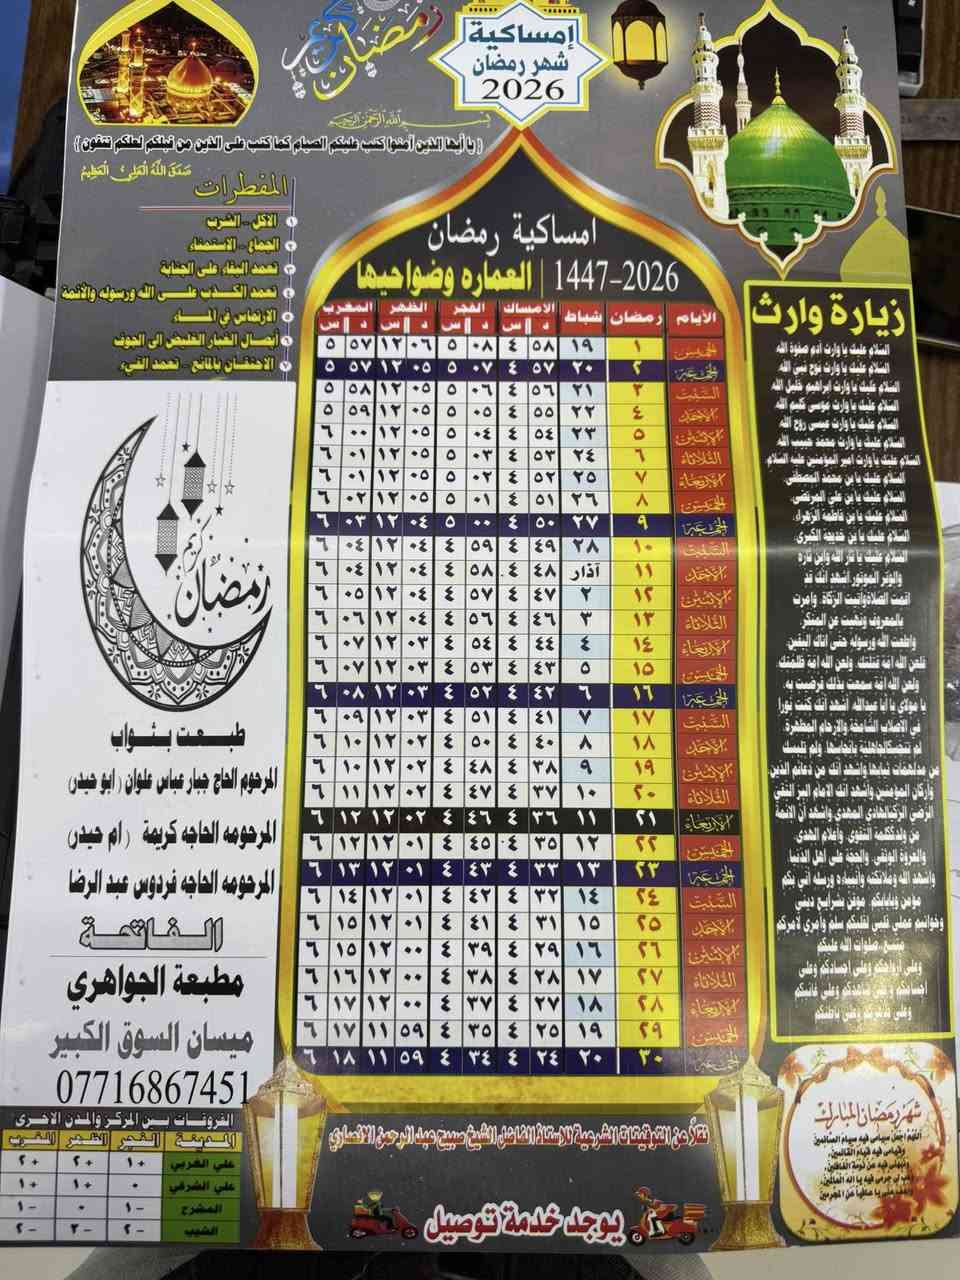 رمضان كريم
إمساكية
شهر رمضان
2026
بسم الله الرحمن الرحيم
{ يا أيها الذين آمنوا كتب عليكم الصيام كما كتب على الذين من قبلكم لعلكم تتقون }
صدق الله العلي العظيم
المفطرات
١ الاكل - الشرب
٢ الجماع - الاستمناء
٣ تعمد البقاء على الجنابة
٤ تعمد الكذب على الله ورسوله والأئمة
٥ الارتماس في الماء
٦ أيصال الغبار الغليض الى الجوف
٧ الاحتقان بالمائع - تعمد القيء
رمضان كريم
طبعت بثواب
المرحوم الحاج جبار عباس علوان ( ابو حيدر)
المرحومه الحاجه كريمة ( ام حيدر)
المرحومه الحاجه فردوس عبد الرضا
الفاتحة
مطبعة الجواهري
ميسان السوق الكبير
07716867451
امساكية رمضان
1447-2026 | العماره وضواحيها
الأيام رمضان شباط الامساك الفجر الظهر المغرب
د س د س د س د س
الخميس ١ ١٩ ٥٨ ٤ ٠٨ ٥ ٠٦ ١٢ ٥٧ ٥
الجمعة ٢ ٢٠ ٥٧ ٤ ٠٧ ٥ ٠٥ ١٢ ٥٧ ٥
السبت ٣ ٢١ ٥٦ ٤ ٠٦ ٥ ٠٥ ١٢ ٥٨ ٥
الاحد ٤ ٢٢ ٥٥ ٤ ٠٥ ٥ ٠٥ ١٢ ٥٩ ٥
الاثنين ٥ ٢٣ ٥٤ ٤ ٠٤ ٥ ٠٥ ١٢ ٠٠ ٦
الثلاثاء ٦ ٢٤ ٥٣ ٤ ٠٣ ٥ ٠٥ ١٢ ٠١ ٦
الاربعاء ٧ ٢٥ ٥٢ ٤ ٠٢ ٥ ٠٥ ١٢ ٠١ ٦
الخميس ٨ ٢٦ ٥١ ٤ ٠١ ٥ ٠٥ ١٢ ٠٢ ٦
الجمعة ٩ ٢٧ ٥٠ ٤ ٠٠ ٥ ٠٤ ١٢ ٠٣ ٦
السبت ١٠ ٢٨ ٤٩ ٤ ٥٩ ٤ ٠٤ ١٢ ٠٤ ٦
الاحد ١١ آذار ٤٨ ٤ ٥٨ ٤ ٠٤ ١٢ ٠٤ ٦
الاثنين ١٢ ٢ ٤٧ ٤ ٥٧ ٤ ٠٤ ١٢ ٠٥ ٦
الثلاثاء ١٣ ٣ ٤٦ ٤ ٥٦ ٤ ٠٤ ١٢ ٠٦ ٦
الاربعاء ١٤ ٤ ٤٤ ٤ ٥٤ ٤ ٠٣ ١٢ ٠٧ ٦
الخميس ١٥ ٥ ٤٣ ٤ ٥٣ ٤ ٠٣ ١٢ ٠٧ ٦
الجمعة ١٦ ٦ ٤٢ ٤ ٥٢ ٤ ٠٣ ١٢ ٠٨ ٦
السبت ١٧ ٧ ٤١ ٤ ٥١ ٤ ٠٣ ١٢ ٠٩ ٦
الاحد ١٨ ٨ ٤٠ ٤ ٥٠ ٤ ٠٢ ١٢ ١٠ ٦
الاثنين ١٩ ٩ ٣٨ ٤ ٤٨ ٤ ٠٢ ١٢ ١٠ ٦
الثلاثاء ٢٠ ١٠ ٣٧ ٤ ٤٧ ٤ ٠٢ ١٢ ١١ ٦
الاربعاء ٢١ ١١ ٣٦ ٤ ٤٦ ٤ ٠٢ ١٢ ١٢ ٦
الخميس ٢٢ ١٢ ٣٥ ٤ ٤٥ ٤ ٠١ ١٢ ١٢ ٦
الجمعة ٢٣ ١٣ ٣٣ ٤ ٤٣ ٤ ٠١ ١٢ ١٣ ٦
السبت ٢٤ ١٤ ٣٢ ٤ ٤٢ ٤ ٠١ ١٢ ١٤ ٦
الاحد ٢٥ ١٥ ٣١ ٤ ٤١ ٤ ٠١ ١٢ ١٥ ٦
الاثنين ٢٦ ١٦ ٢٩ ٤ ٣٩ ٤ ٠٠ ١٢ ١٥ ٦
الثلاثاء ٢٧ ١٧ ٢٨ ٤ ٣٨ ٤ ٠٠ ١٢ ١٦ ٦
الاربعاء ٢٨ ١٨ ٢٧ ٤ ٣٧ ٤ ٠٠ ١٢ ١٧ ٦
الخميس ٢٩ ١٩ ٢٥ ٤ ٣٥ ٤ ٥٩ ١١ ١٧ ٦
الجمعة ٣٠ ٢٠ ٢٤ ٤ ٣٤ ٤ ٥٩ ١١ ١٨ ٦
زيارة وارث
السلام عليك يا وارث آدم صفوة الله
السلام عليك يا وارث نوح نبي الله
السلام عليك يا وارث ابراهيم خليل الله
السلام عليك يا وارث موسى كليم الله
السلام عليك يا وارث عيسى روح الله
السلام عليك يا وارث محمد حبيب الله
السلام عليك يا وارث امير المؤمنين عليه السلام
السلام عليك يا بن محمد المصطفى
السلام عليك يا بن علي المرتضى
السلام عليك يا بن فاطمة الزهراء
السلام عليك يا بن خديجة الكبرى
السلام عليك يا ثار الله وابن ثاره
والوتر الموتور، اشهد انك قد
اقمت الصلاة وآتيت الزكاة، وامرت
بالمعروف ونهيت عن المنكر
واطعت الله ورسوله حتى اتاك اليقين
فلعن الله امة قتلتك، ولعن الله امة ظلمتك،
ولعن الله امة سمعت بذلك فرضيت به،
يا مولاي يا ابا عبدالله، اشهد انك كنت نورا
في الاصلاب الشامخة والارحام المطهرة،
لم تنجسك الجاهلية بأنجاسها، ولم تلبسك
من مدلهمات ثيابها واشهد انك من دعائم الدين،
واركان المؤمنين واشهد انك الامام البر التقي
الرضي الزكي الهادي المهدي واشهد ان الائمة
من ولدك كلمة التقوى، وأعلام الهدى،
والعروة الوثقى، والحجة على أهل الدنيا،
واشهد الله وملائكته وأنبيائه ورسله أني بكم
مؤمن وبإيابكم، موقن بشرايع ديني
وخواتيم عملي قلبي لقلبكم سلم وأمري لأمركم
متبع، صلوات الله عليكم
وعلى أرواحكم وعلى أجسادكم وعلى
أجسامكم وعلى شاهدكم وعلى غائبكم
وعلى ظاهركم وعلى باطنكم
نقلاً عن التوقيتات الشرعية للاستاذ الفاضل الشيخ صبيح عبد الرحمن الانصاري
يوجد خدمة توصيل
الفروقات بين المركز والمدن الاخرى
المدينة الفجر الظهر المغرب
علي الغربي ١+ ٢+ ٢+
علي الشرقي ٠ ١+ ١+
المشرح ١- ٠ ١-
الشيب ٢- ٢- ٢-
شهر رمضان المبارك
اللهم اجعل صيامي فيه صيام الصائمين
وقيامي فيه قيام القائمين،
ونبهني فيه عن نومة الغافلين،
وهب لي جرمي فيه يا اله العالمين،
واعف عني يا عافياً عن المجرمين